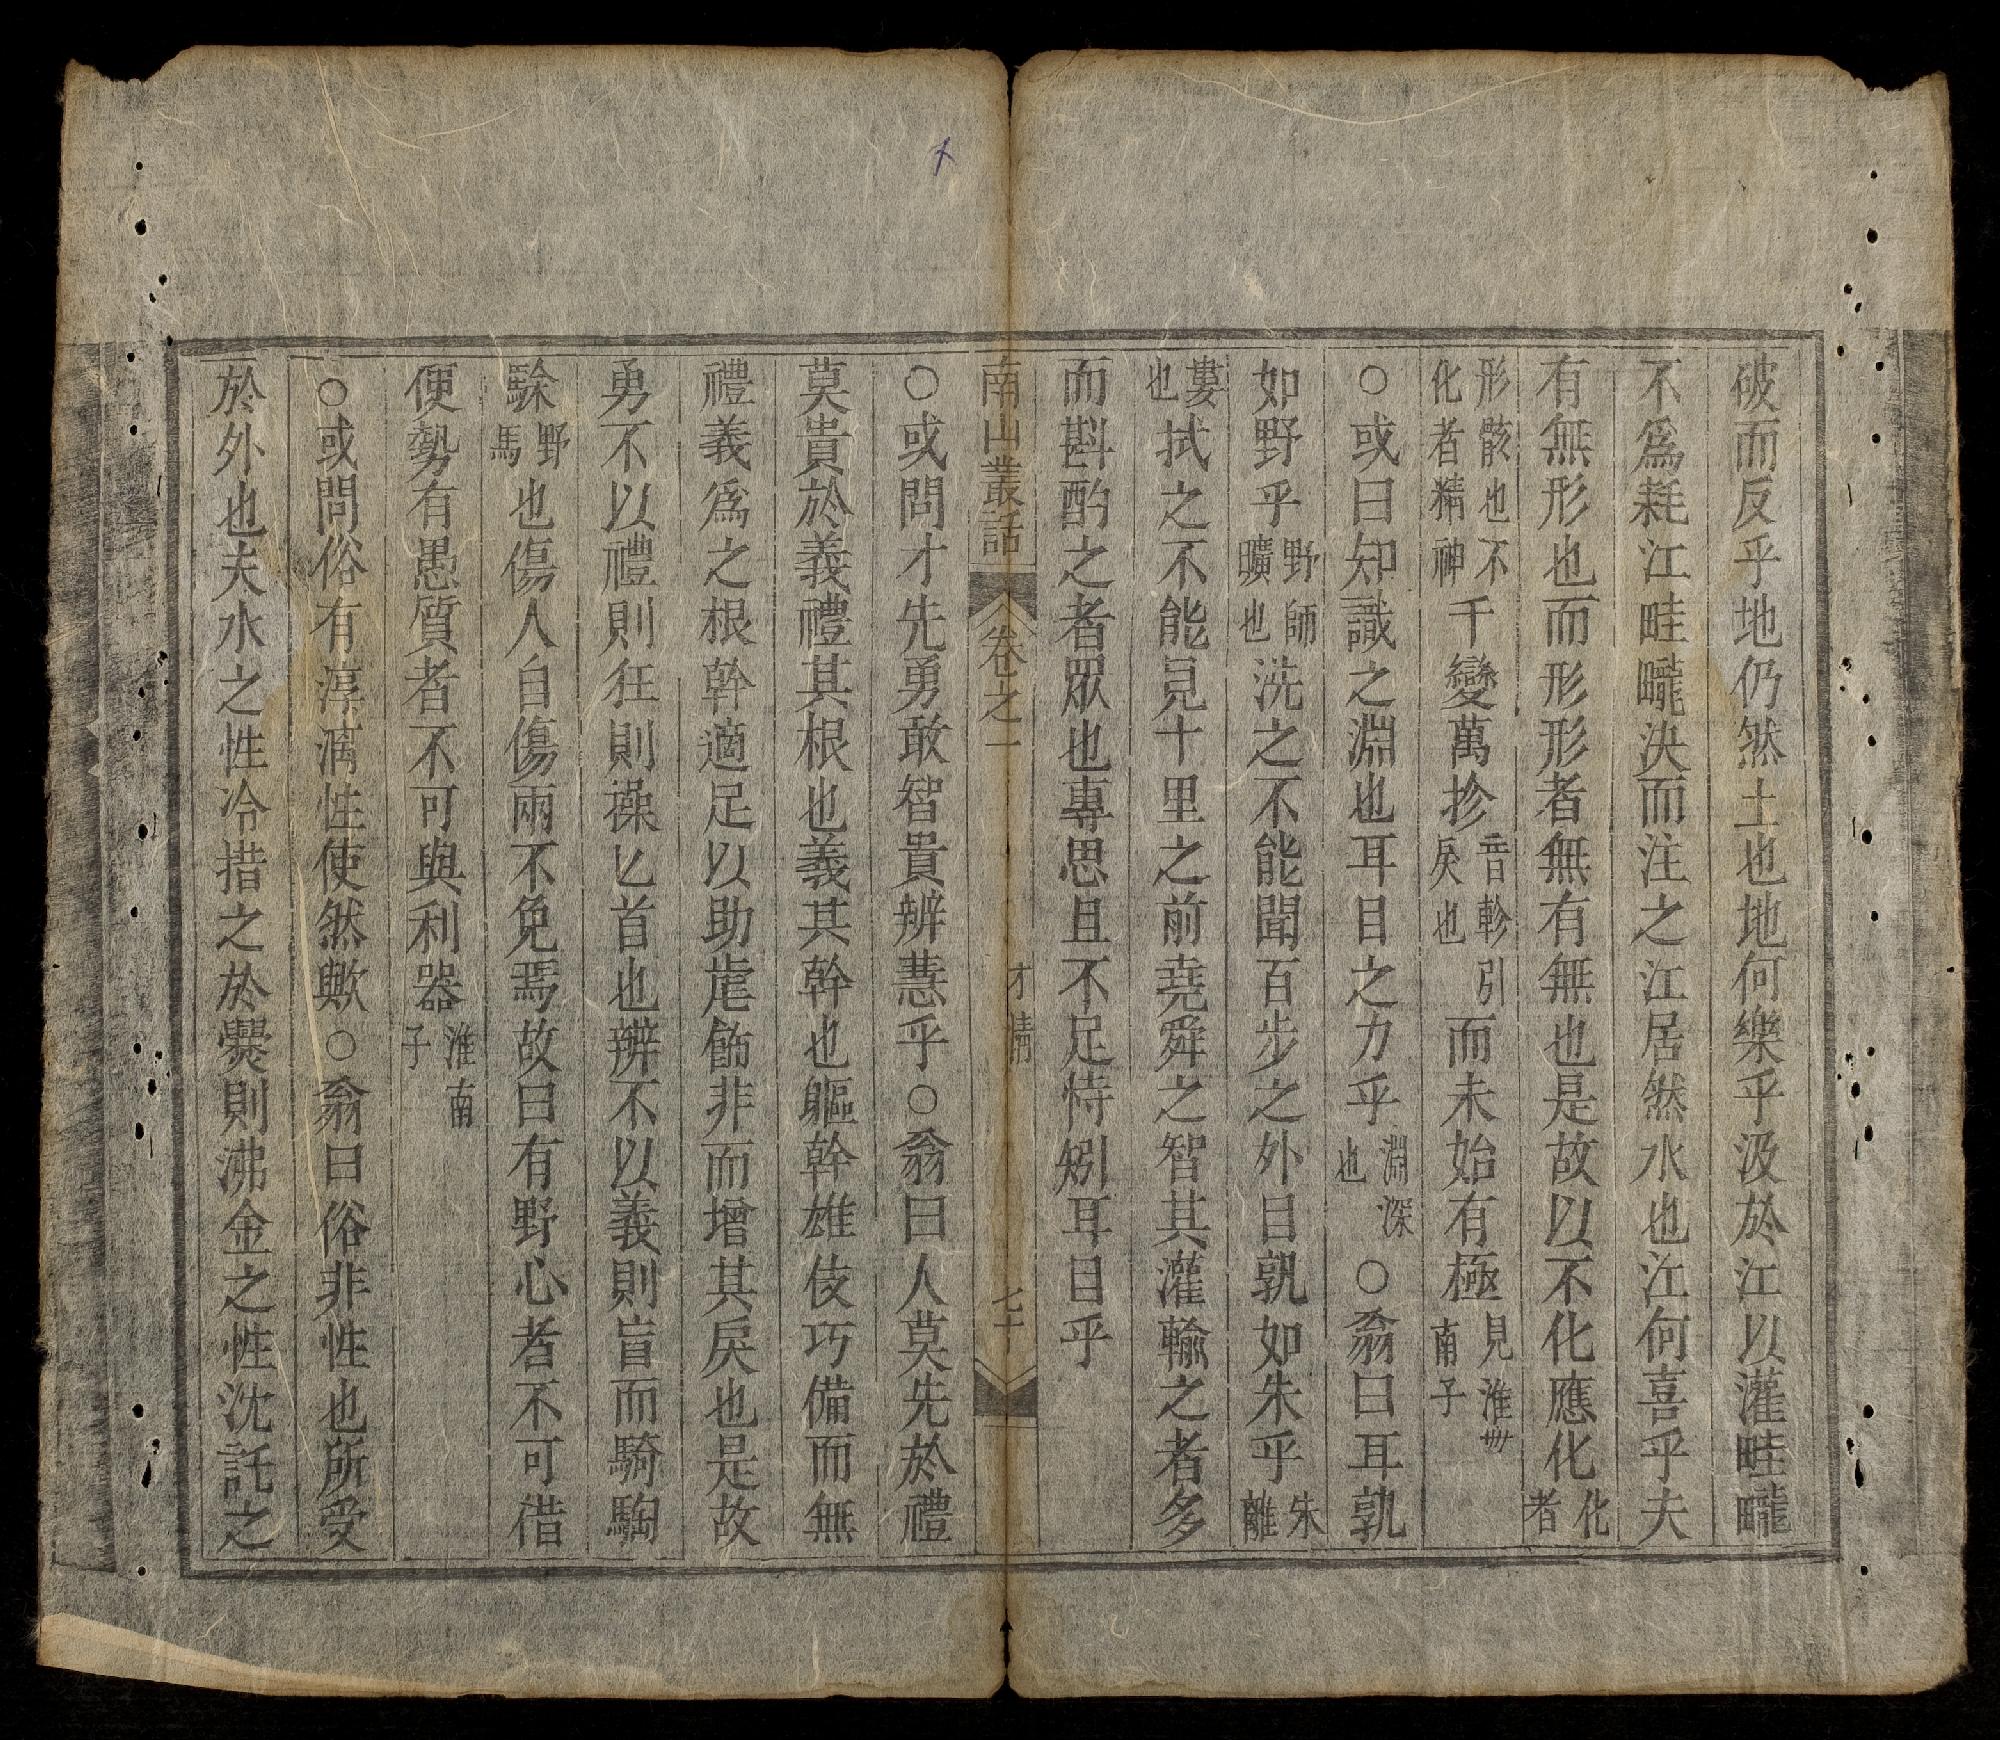 破而反乎地仍然土也地何樂乎汲於江以灌畦矓
不爲耗江畦矓決而注之江居然水也江何喜乎夫
有無形也而形形者無有無也是故以不化應化化者
形骸也不化者精神千變萬抮音軫引戾也而未始有極見淮卅南子
○或曰知識之淵也耳目之力乎淵深也○翁曰耳孰
如野乎野師曠也洗之不能聞百步之外目孰如朱乎朱離
婁也拭之不能見十里之前堯舜之智其灌輸之者多
而斟酌之者眾也專思且不足恃矧耳目乎
南山叢話 卷之一 才情 七十
○或問才先勇敢智貴辨慧乎○翁曰人莫先於禮
莫貴於義禮其根也義其幹也軀幹雄伎巧備而無
禮義爲之根幹適足以助虐飾非而增其戾也是故
勇不以禮則狂則襙匕首也辨不以義則盲而騎騊
駼野馬也傷人自傷兩不免焉故曰有野心者不可借
便勢有愚質者不可與利器淮南子
○或問俗有淳漓性使然歟○翁曰俗非性也所受
於外也夫水之性冷措之於爨則沸金之性沈託之